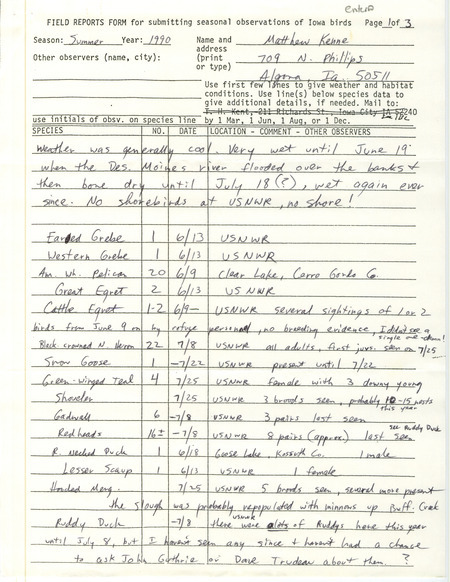 enter
FIELD REPORTS FORM for submitting seasonal observations of Iowa birds Page 1 of 3
Season: Summer Year: 1990 Name and address (print or type) Matthew Kenne
Other observers (name, city): 709 N. Phillips
Algona Ia. 50511
Use first few lines to give weather and habitat
conditions. Use line(s) below species data to
give additional details, if needed. Mail to:
T. H. Kent, 211 Richards St., Iowa City IA 52240
use initials of obsv. on species line by 1 Mar, 1 Jun, 1 Aug, or 1 Dec.
SPECIES NO. DATE LOCATION - COMMENT - OTHER OBSERVERS
Weather was generally cool. Very wet until June 19
when the Des Moines river flooded over the banks +
then bone dry until July 18(?), wet again ever
since. No shorebirds at USNWR, no shore!
Eared Grebe 1 6/13 USNWR
Western Grebe 1 6/13 USNWR
Am. Wh. Pelican 20 6/9 Clear Lake, Cerro Gordo Co.
Great Egret 2 6/13 USNWR
Cattle Egret 1-2 6/9- USNWR several sightings of 1 or 2
birds from June 9 on by refuge personnel, no breeding evidence, I didn't see a single one
Black crowned N. Heron 22 7/8 USNWR all adults, first juv. seen on 7/25
Snow Goose 1 -7/22 USNWR present until 7/22
Green-winged Teal 4 7/25 USNWR female with 3 downy young
Shoveler 7/25 USNWR 3 broods seen, probably 10-15 nests this year
Gadwall 6 -7/8 USNWR 3 pairs last seen
Redheads 16± -7/8 USNWR 8 pairs (approx.) last seen see Ruddy Duck
R. Necked Duck 1 6/18 Goose Lake, Kossuth Co. 1 male
Lesser Scaup 1 6/13 USNWR 1 female
Hooded Merg. 7/25 USNWR 5 broods seen, several more present
the slough was probably repopulated with minnows up Buff. Creek
Ruddy Duck -7/8 USNWR there were alots of Ruddys here this year
until July 8, but I haven't seen any since + haven't had a chance
to ask John Guthrie or Dave Trudeau about them. ?